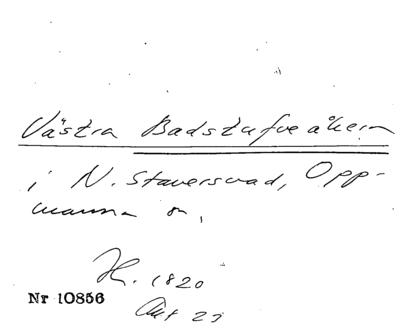 Västra Badstufveåkern
i N. Staversvad, Opp-
manna sn,
H. 1820
Nr 10856
Akt 23